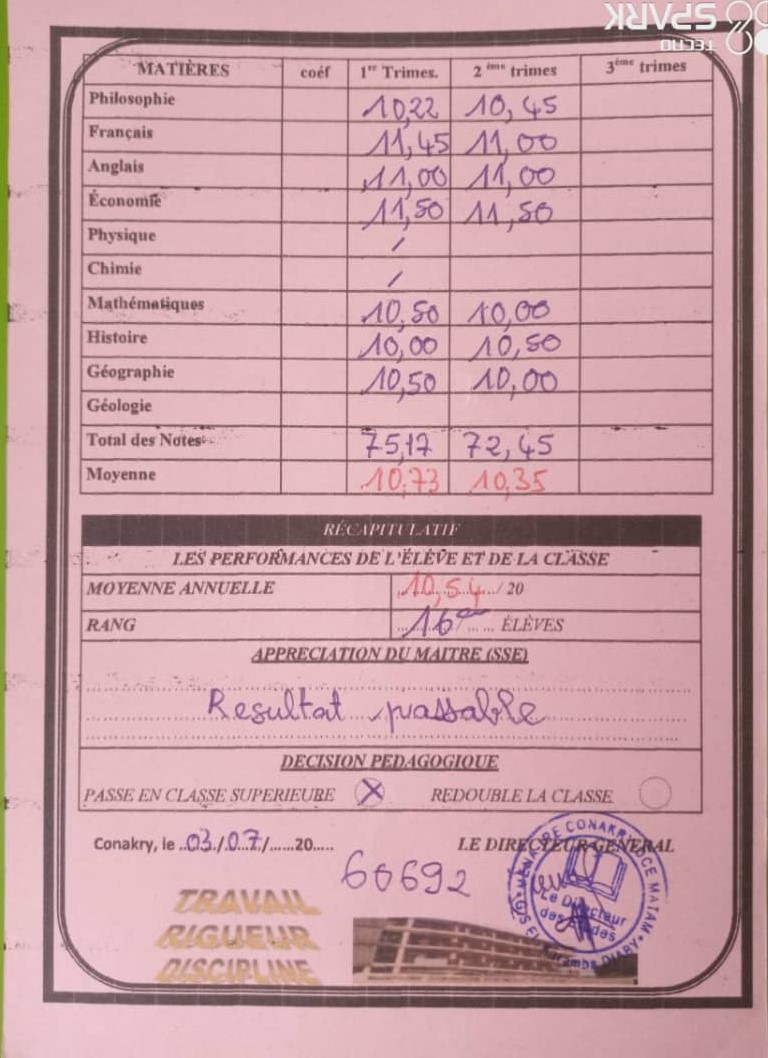 SPARK 8
TECNO
MATIÈRES coéf 1er Trimes. 2ème trimes 3ème trimes
Philosophie 10,22 10,45
Français 11,45 11,00
Anglais 11,00 11,00
Économie 11,50 11,50
Physique /
Chimie /
Mathématiques 10,50 10,00
Histoire 10,00 10,50
Géographie 10,50 10,00
Géologie
Total des Notes 75,17 72,45
Moyenne 10,73 10,35
RÉCAPITULATIF
LES PERFORMANCES DE L'ÉLÈVE ET DE LA CLASSE
MOYENNE ANNUELLE 10,54 / 20
RANG 16ème ÉLÈVES
APPRECIATION DU MAITRE (SSE)
Resultat passable
DECISION PEDAGOGIQUE
PASSE EN CLASSE SUPERIEURE X REDOUBLE LA CLASSE
Conakry, le 03/07/......20..... LE DIRECTEUR GENERAL
60692
CONAKRY DCE MATAM
Le Directeur
des Etudes
DIABY
TRAVAIL
RIGUEUR
DISCIPLINE